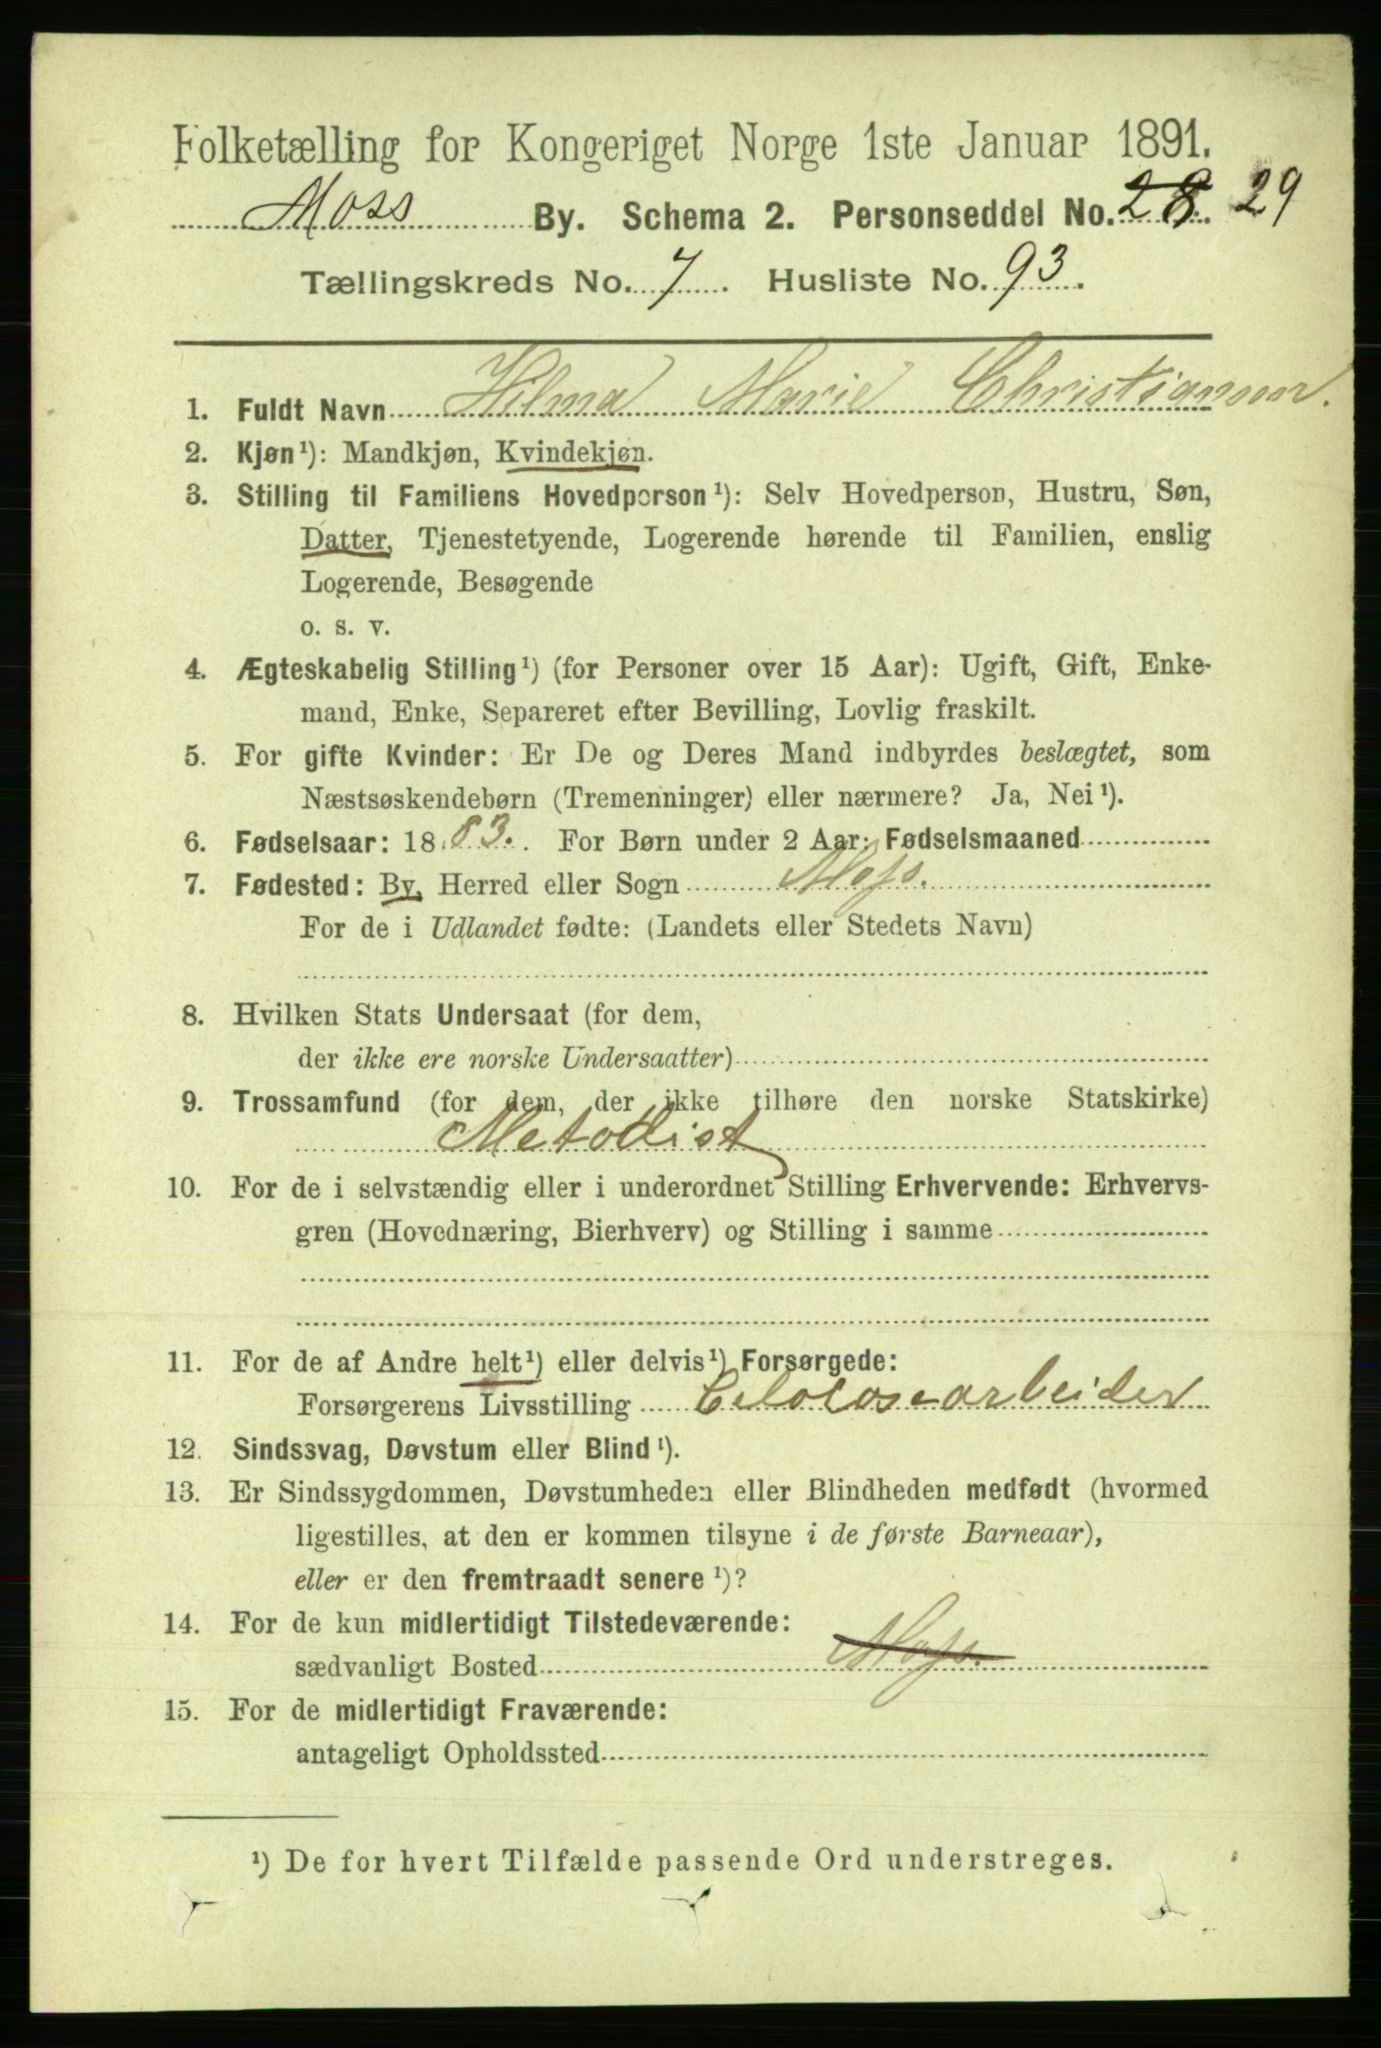 Folketælling for Kongeriget Norge 1ste Januar 1891.
Moss By. Schema 2. Personseddel No. 28. 29
Tællingskreds No. 7. Husliste No. 93.
1. Fuldt Navn Hilma Marie Christiansen.
2. Kjøn¹): Mandkjøn, Kvindekjøn.
3. Stilling til Familiens Hovedperson¹): Selv Hovedperson, Hustru, Søn,
Datter, Tjenestetyende, Logerende hørende til Familien, enslig
Logerende, Besøgende
o. s. v.
4. Ægteskabelig Stilling¹) (for Personer over 15 Aar): Ugift, Gift, Enke-
mand, Enke, Separeret efter Bevilling, Lovlig fraskilt.
5. For gifte Kvinder: Er De og Deres Mand indbyrdes beslægtet, som
Næstsøskendebørn (Tremenninger) eller nærmere? Ja, Nei¹).
6. Fødselsaar: 1883. For Børn under 2 Aar: Fødselsmaaned
7. Fødested: By, Herred eller Sogn Moss.
For de i Udlandet fødte: (Landets eller Stedets Navn)
8. Hvilken Stats Undersaat (for dem,
der ikke ere norske Undersaatter)
9. Trossamfund (for dem, der ikke tilhøre den norske Statskirke)
Metodist
10. For de i selvstændig eller i underordnet Stilling Erhvervende: Erhvervs-
gren (Hovednæring, Bierhverv) og Stilling i samme
11. For de af Andre helt¹) eller delvis¹) Forsørgede:
Forsørgerens Livsstilling Celolosearbeider
12. Sindssvag, Døvstum eller Blind¹).
13. Er Sindssygdommen, Døvstumheden eller Blindheden medfødt (hvormed
ligestilles, at den er kommen tilsyne i de første Barneaar),
eller er den fremtraadt senere¹)?
14. For de kun midlertidigt Tilstedeværende:
sædvanligt Bosted Moss.
15. For de midlertidigt Fraværende:
antageligt Opholdssted
¹) De for hvert Tilfælde passende Ord understreges.